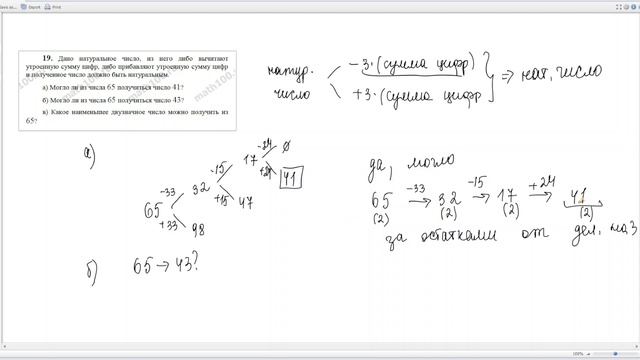 Save as...
Export
Print
19. Дано натуральное число, из него либо вычитают
утроенную сумму цифр, либо прибавляют утроенную сумму цифр
и полученное число должно быть натуральным.
а) Могло ли из числа 65 получиться число 41?
б) Могло ли из числа 65 получиться число 43?
в) Какое наименьшее двузначное число можно получить из
65?
math100.ru
натур. число
-3·(сумма цифр)
+3·(сумма цифр
⇒ нат. число
а)
65
-33 32
+33 98
-15 17
+15 47
-24 ∅
+24 41
да, могло
65 -33→ 32 -15→ 17 +24→ 41
(2) (2) (2) (2)
за остатками от дел. на 3
б) 65 → 43?
100%